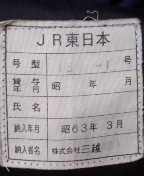 JR東日本
号型 号
貸与年月 昭 年 月
氏名
納入年月 昭63年 3月
納入者名 株式会社三越